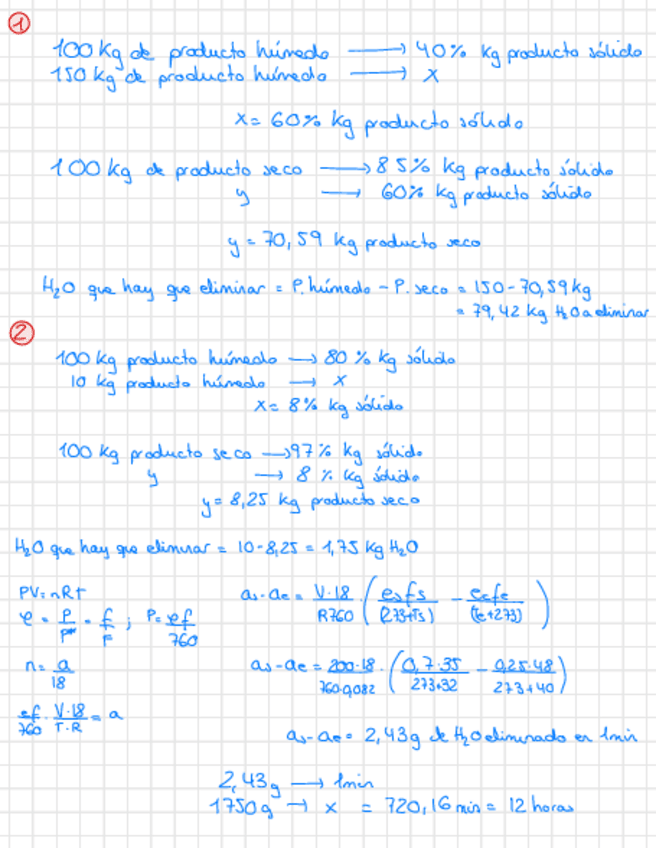 ①
100 Kg de producto húmedo → 40% kg producto sólido
150 kg de producto húmedo → x
x = 60% kg producto sólido
100 kg de producto seco → 85% kg producto sólido
y → 60% kg producto sólido
y = 70,59 kg producto seco
H₂O que hay que eliminar = P. húmedo - P. seco = 150 - 70,59 kg
= 79,42 kg H₂O a eliminar
②
100 kg producto húmedo → 80 % kg sólido
10 kg producto húmedo → x
x = 8% kg sólido
100 kg producto seco → 97% kg sólido
y → 8 % kg sólido
y = 8,25 kg producto seco
H₂O que hay que eliminar = 10 - 8,25 = 1,75 kg H₂O
PV = nRt
e = P/P* = f/F ; P = ef/760
as - ae = V·18/R760 · (esfs/(273+Ts) - eefe/(te+273))
n = a/18
as - ae = 200·18/760·0,082 · (0,7·35/273+32 - 0,25·48/273+40)
ef/760 · V·18/T·R = a
as - ae = 2,43 g de H₂O eliminado en 1min
2,43g → 1min
1750g → x = 720,16 min = 12 horas